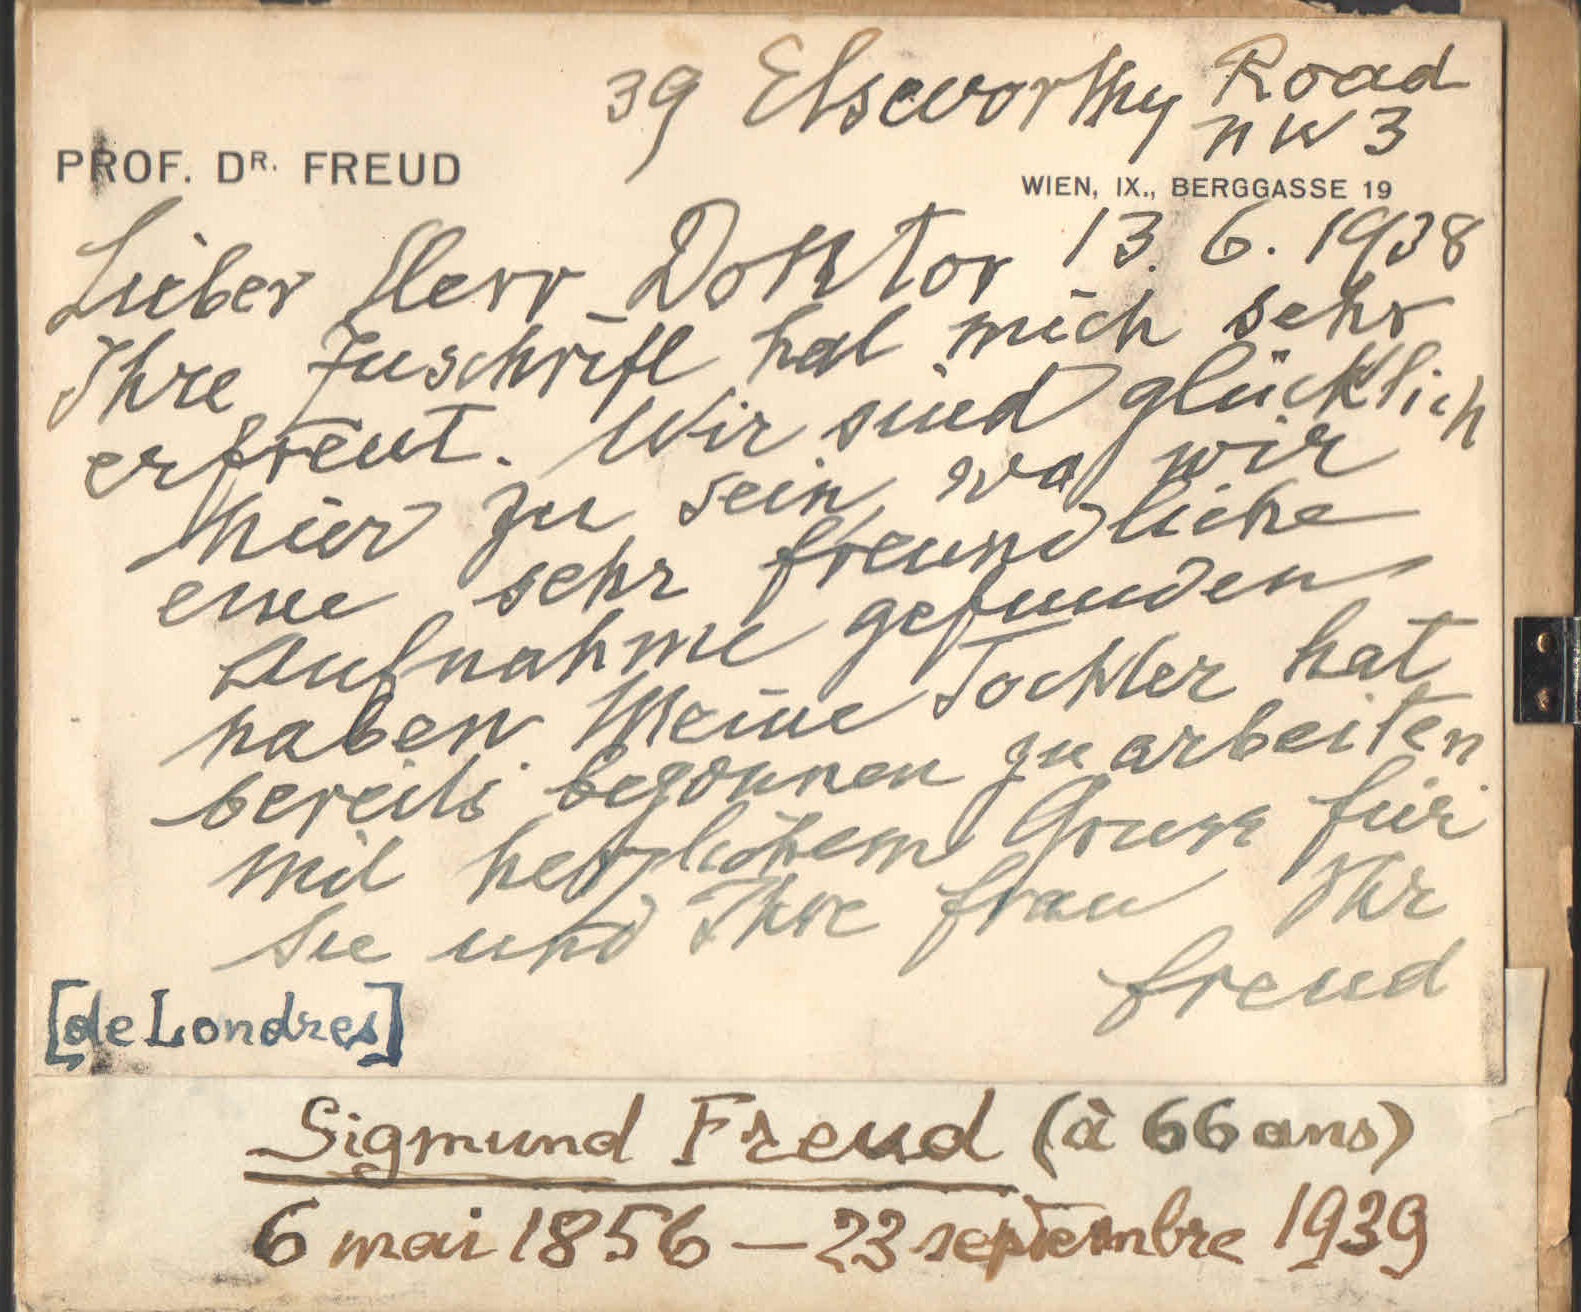 39 Elsworthy Road
NW3
PROF. DR. FREUD
WIEN, IX., BERGGASSE 19
13. 6. 1938
Lieber Herr Doktor
Ihre Zuschrift hat mich sehr
erfreut. Wir sind glücklich
hier zu sein, wo wir
eine sehr freundliche
Aufnahme gefunden
haben. Meine Tochter hat
bereits begonnen zu arbeiten
mit herzlichem Gruss für
Sie und Ihre Frau Ihr
Freud
[de Londres]
Sigmund Freud (à 66 ans)
6 mai 1856 — 23 septembre 1939